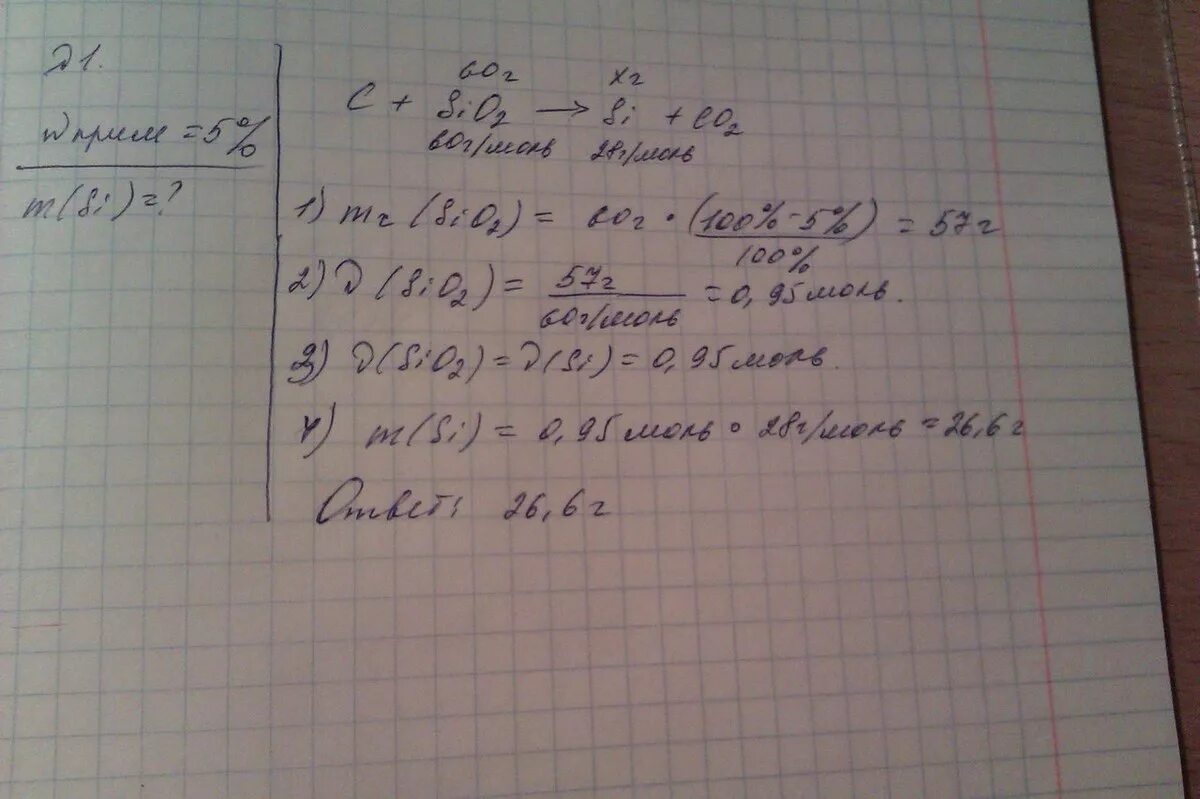 №1.
wприм = 5%
m(Si)=?
60г xг
C + SiO2 → Si + CO2
60г/моль 28г/моль
1) mч (SiO2) = 60г • (100% - 5%) / 100% = 57г
2) ν (SiO2) = 57г / 60г/моль = 0,95 моль.
3) ν(SiO2) = ν(Si) = 0,95 моль.
4) m(Si) = 0,95 моль • 28г/моль = 26,6г
Ответ: 26,6г